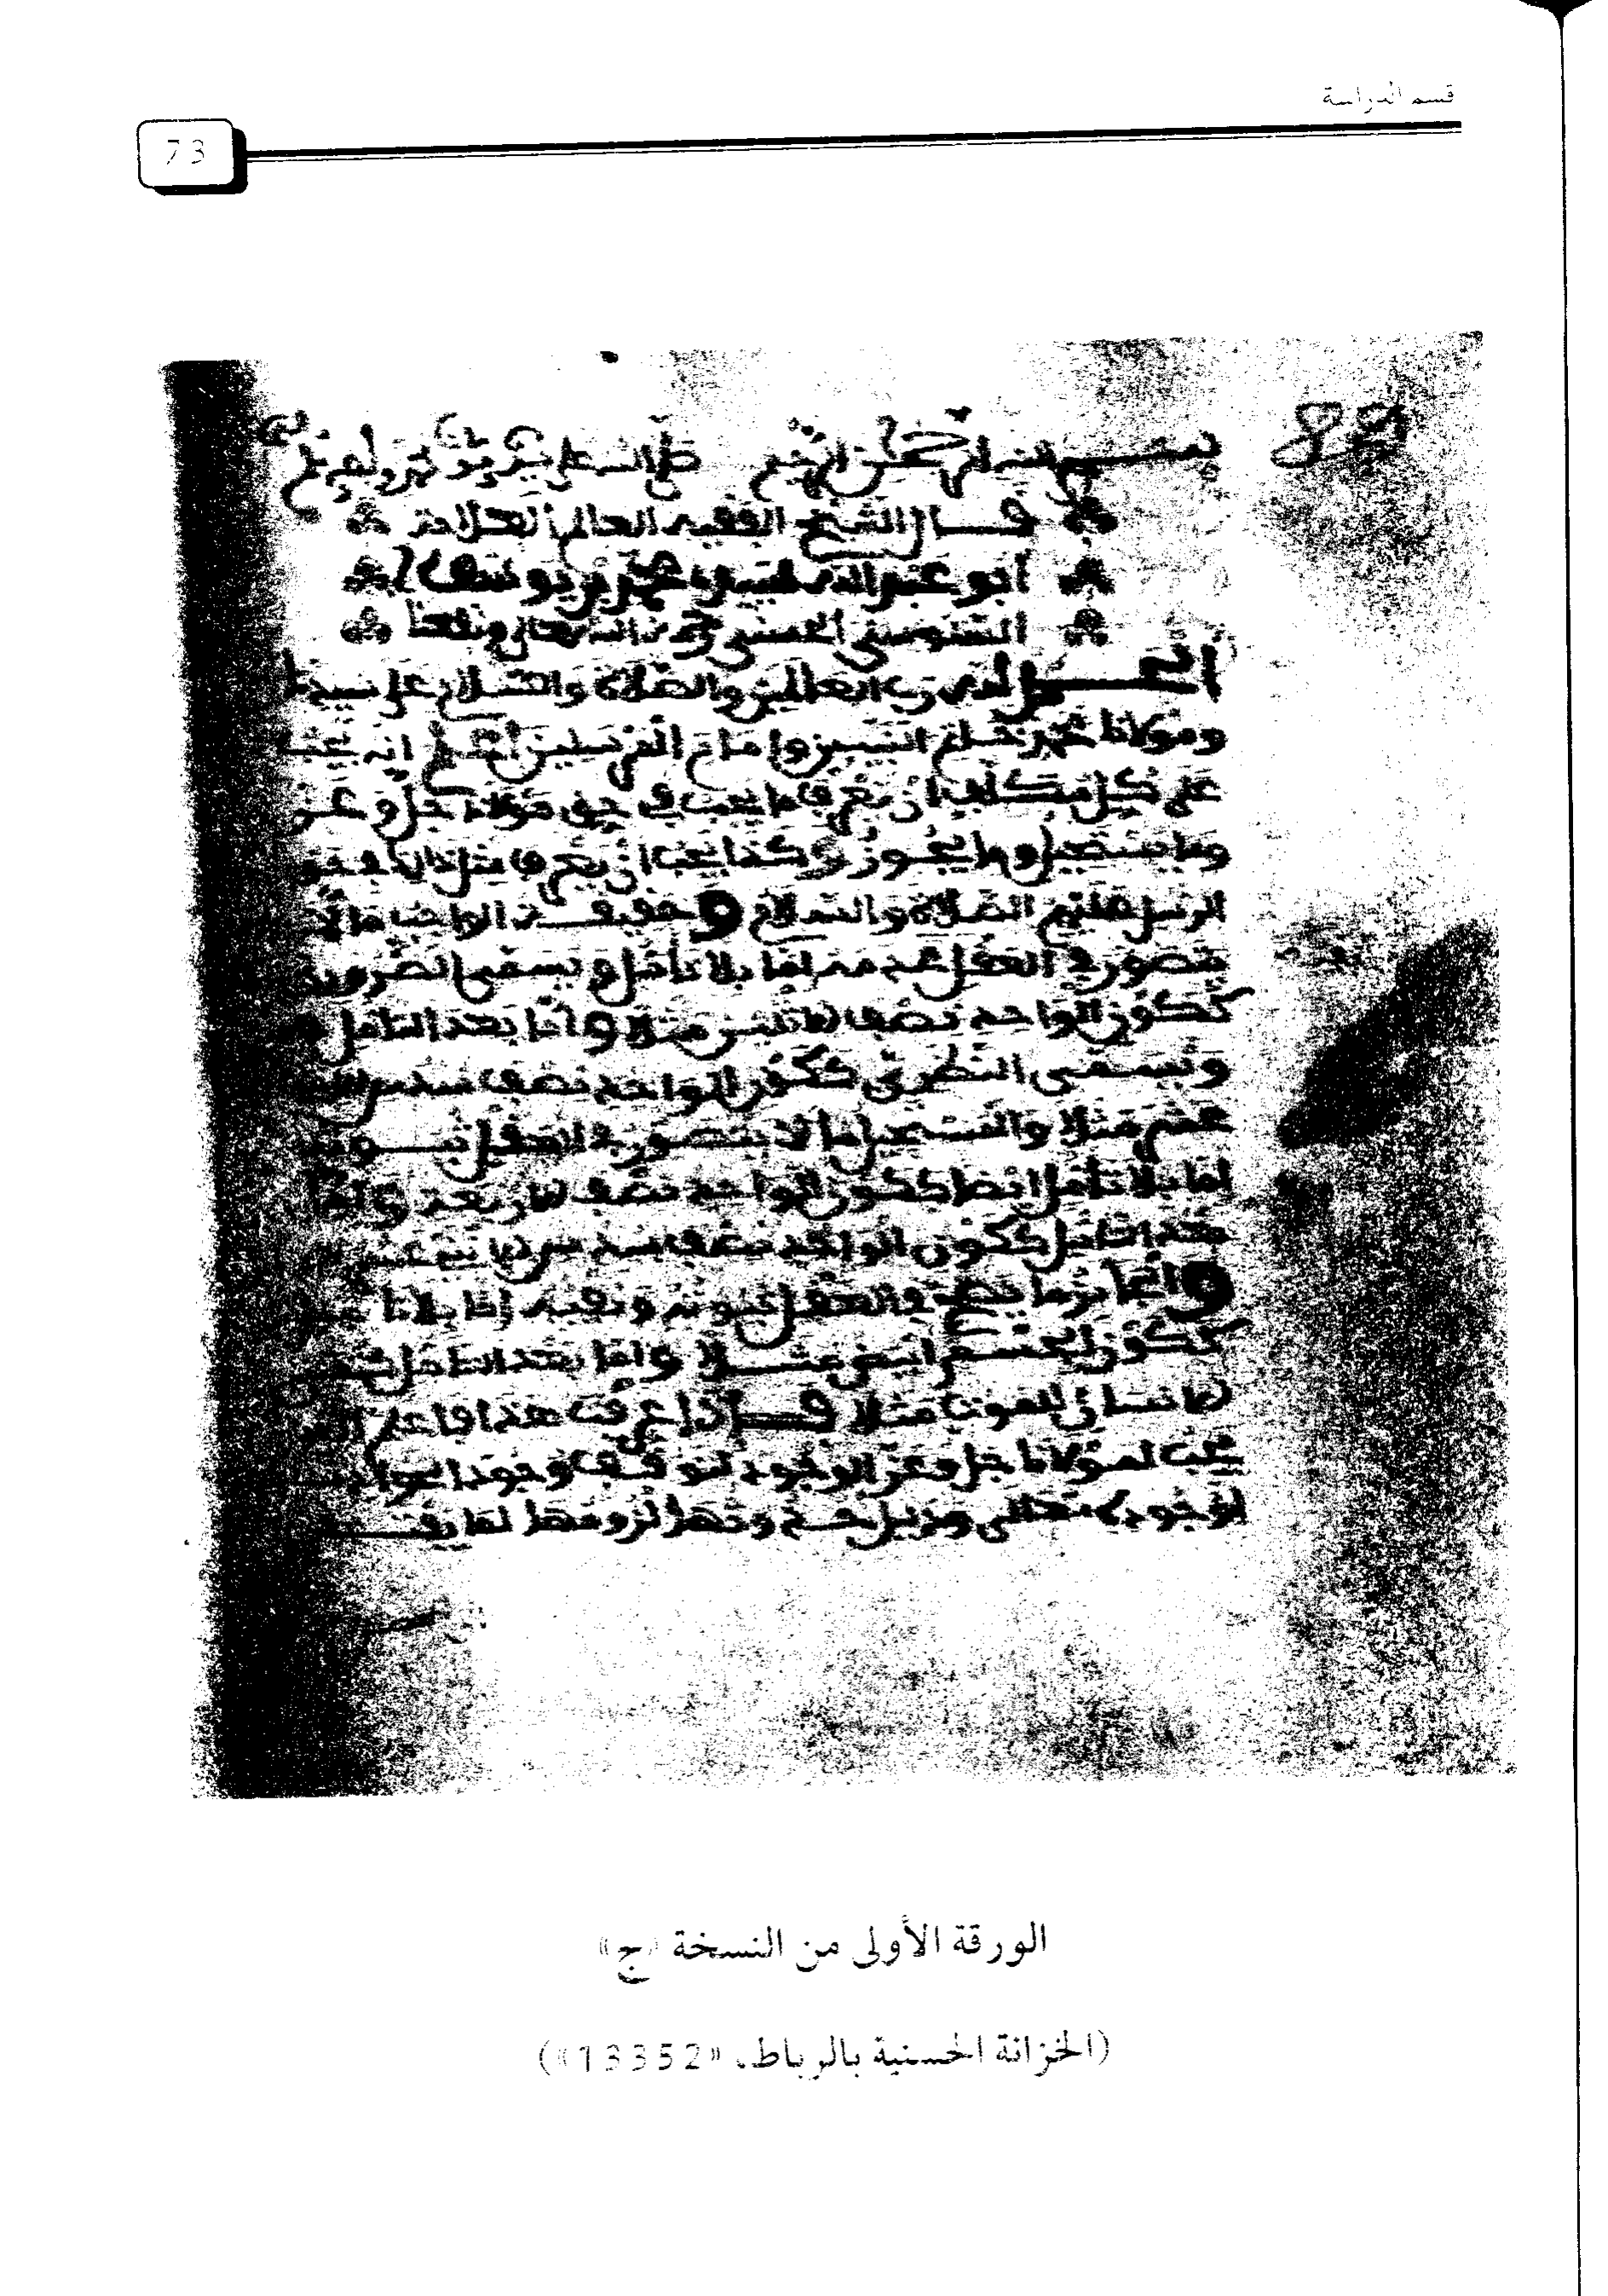 قسم الدراسة
73
بسم الله الرحمن الرحيم صلى الله على سيدنا ومولانا محمد وآله
قال الشيخ الفقيه العالم العلامة
أبو عبد الله سيدي محمد بن يوسف
السنوسي الحسني رحمه الله تعالى ونفعنا
الحمد لله رب العالمين والصلاة والسلام على سيدنا
ومولانا محمد خاتم النبيين وإمام المرسلين اعلم أنه يجب
على كل مكلف أن يعرف ما يجب في حق مولانا جل وعز
وما يستحيل وما يجوز وكذا يجب أن يعرف مثل ذلك في حق
الرسل عليهم الصلاة والسلام وحقيقة الواجب ما لا
يتصور في العقل عدمه إما بلا تأمل ويسمى الضروري
ككون الواحد نصف الاثنين مثلا وإما بعد التأمل
ويسمى النظري ككون الواحد نصف سدس
عشر مثلا والمستحيل ما لا يتصور في العقل ثبوته
إما بلا تأمل أيضا ككون الواحد نصف الأربعة وإما
بعد التأمل ككون الواحد نصف سدس
والجائز ما يصح في العقل ثبوته ونفيه إما بلا تأمل
ككون الجسم أبيض مثلا وإما بعد التأمل كتمني
الإنسان للموت مثلا فإذا عرفت هذا فاعلم أنه
يجب لمولانا جل وعز الوجود لتوقف وجود الحوادث
لوجوده تعالى ودليل حدوثها لزومها لما يفتقر
الورقة الأولى من النسخة «ج»
(الخزانة الحسنية بالرباط، «13352»)